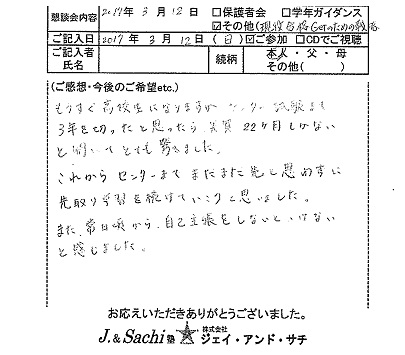 懇談会内容 2017年 3月 12日 □保護者会 □学年ガイダンス
☑その他(現役合格Getのための教室
ご記入日 2017年 3月 12日 (日) ☑ご参加 □CDでご視聴
ご記入者氏名 続柄 本人・父・母
その他( )
(ご感想・今後のご希望etc.)
もうすぐ高校生になりますが センター試験まで
3年を切ったと思ったら、実質 22ヶ月しかない
と聞いてとても驚きました。
これから センターまで まだまだ先と思わずに
先取り学習を続けていこうと思いました。
また、常日頃から、自己主張をしないといけない
と感じました。
お応えいただきありがとうございました。
J.&Sachi塾 株式会社 ジェイ・アンド・サチ